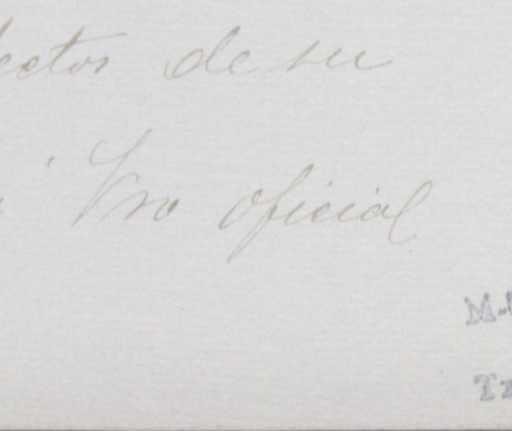 ectos de su
Pro oficial
M-